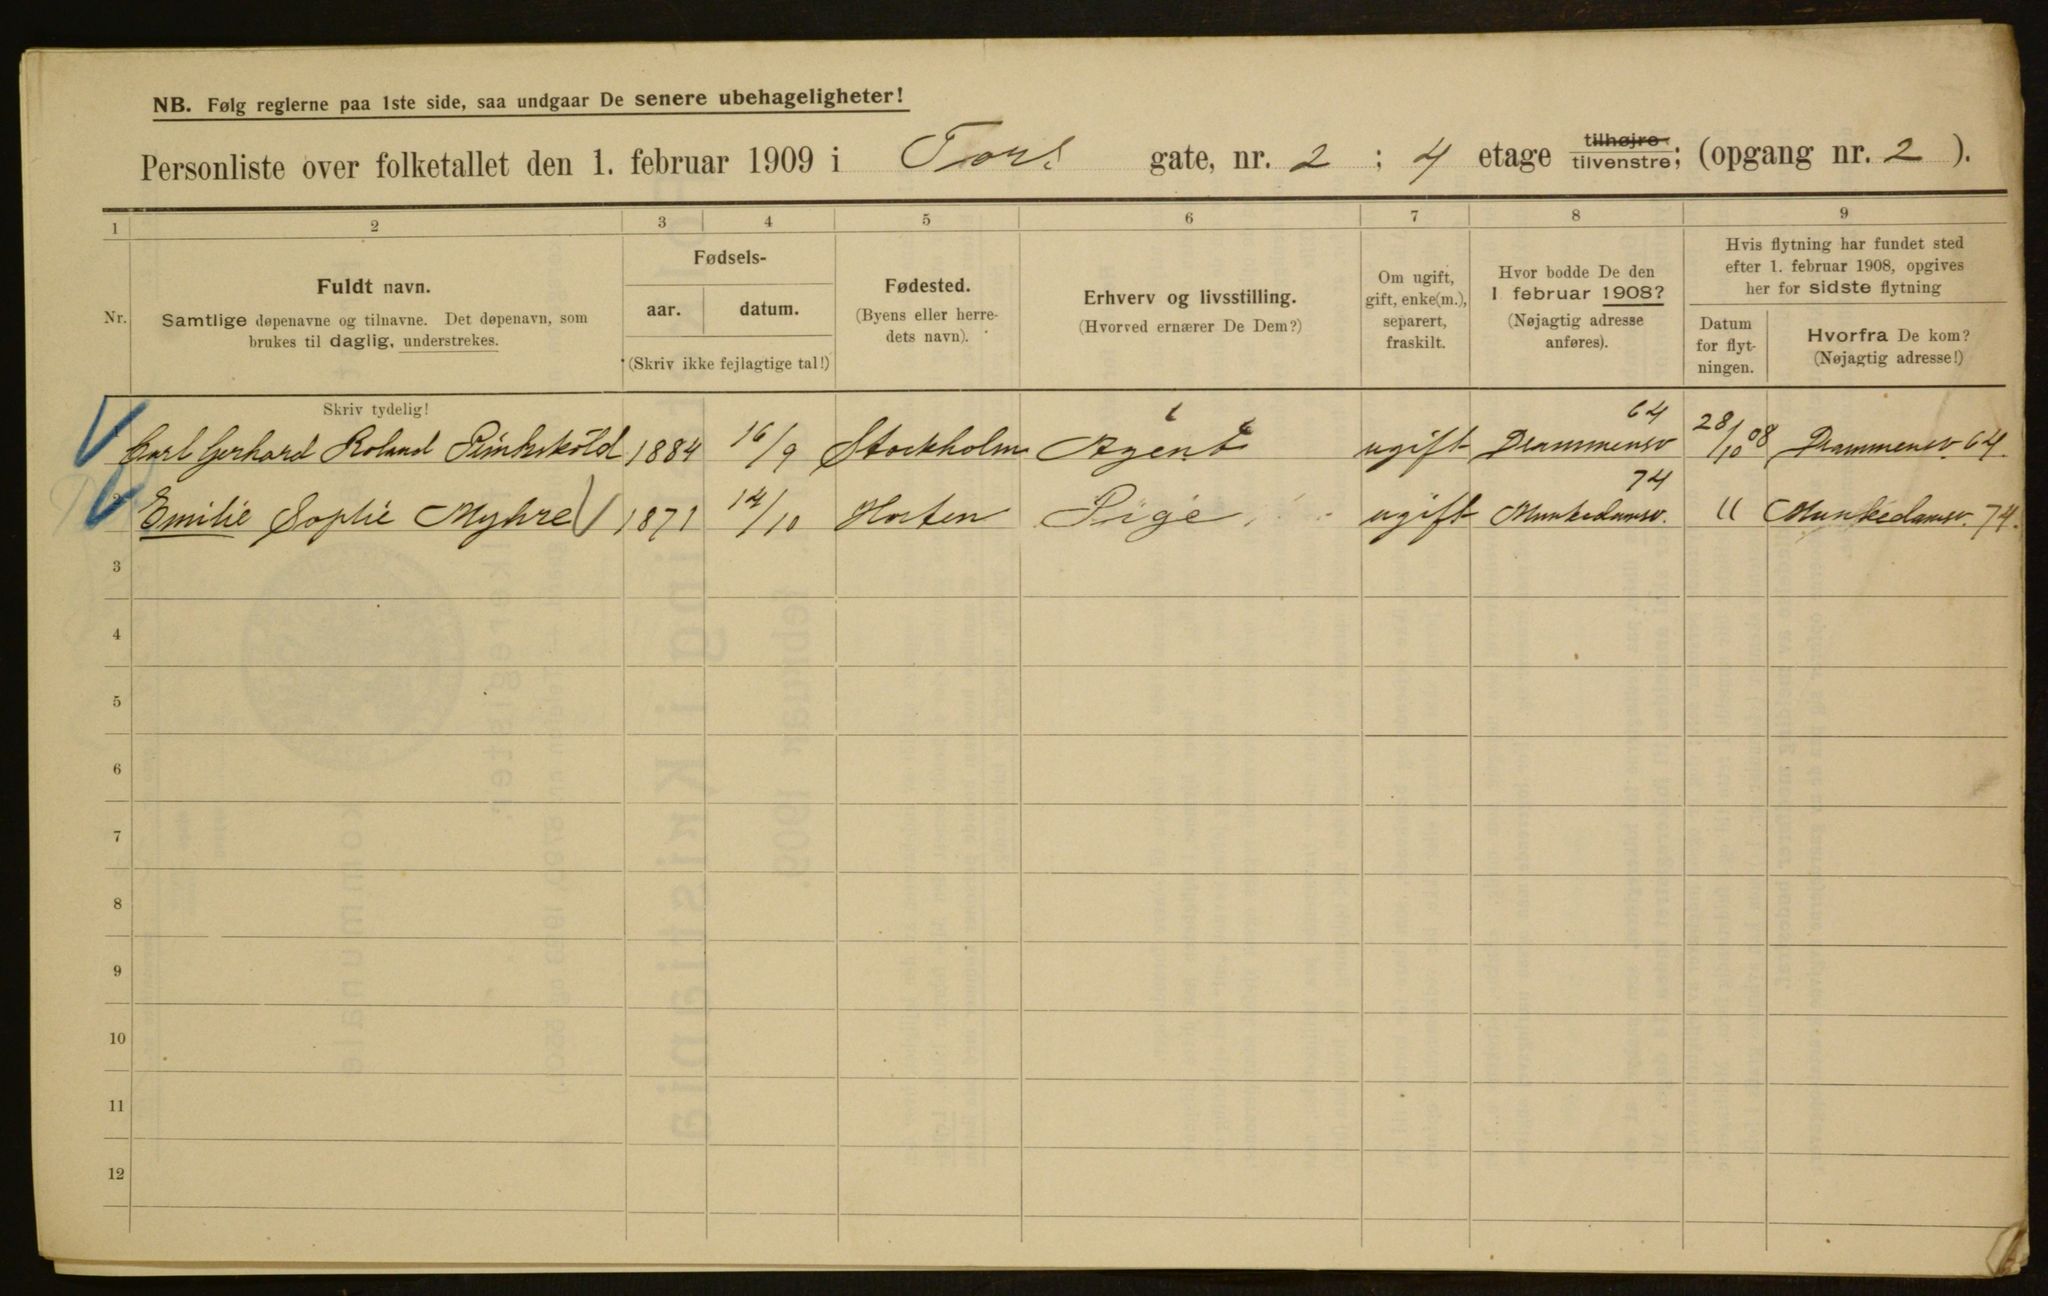 NB. Følg reglerne paa 1ste side, saa undgaar De senere ubehageligheter!
Personliste over folketallet den 1. februar 1909 i Tors gate, nr. 2 ; 4 etage tilhøjre tilvenstre; (opgang nr. 2 ).
1 2 3 4 5 6 7 8 9
Nr.
Fuldt navn.
Samtlige døpenavne og tilnavne. Det døpenavn, som
brukes til daglig, understrekes.
Fødsels-
aar. datum.
(Skriv ikke fejlagtige tal!)
Fødested.
(Byens eller herre-
dets navn).
Erhverv og livsstilling.
(Hvorved ernærer De Dem?)
Om ugift,
gift, enke(m.),
separert,
fraskilt.
Hvor bodde De den
1 februar 1908?
(Nøjagtig adresse
anføres).
Hvis flytning har fundet sted
efter 1. februar 1908, opgives
her for sidste flytning
Datum
for flyt-
ningen.
Hvorfra De kom?
(Nøjagtig adresse!)
Skriv tydelig!
Karl Gerhard Roland 1884 16/9 Stockholm Agent ugift Drammensv 64 28/10 08 Drammensv. 64.
2 Emilie Sophie Myhre 1871 14/10 Horten Pige ugift Munkedamsv. 74 " Munkedamsv. 74.
3
4
5
6
7
8
9
10
11
12